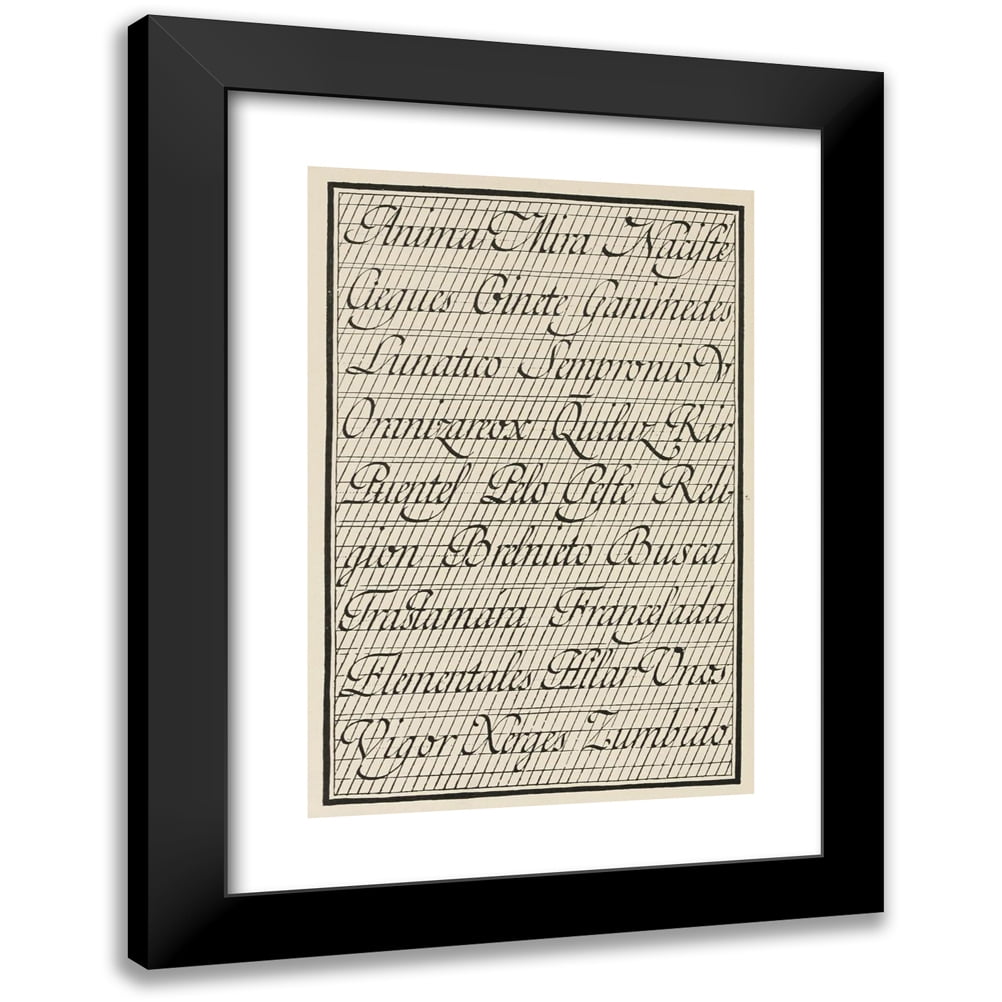 Anima Mira Naciste
Gegues Ginete Ganimedes
Lunatico Sempronio V
Oranizareox Quiluz Kir
Puentes Pelo Peste Reli-
gion Bresnieto Busca
Trastamára Francesada
Elementales Hilar Vnos
Vigor Xerges Zumbido.